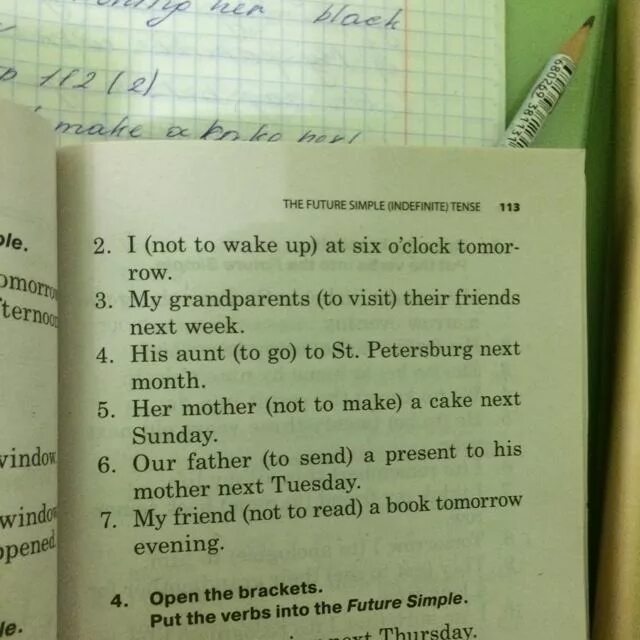 her black
112 (2)
make a
680269 38113
THE FUTURE SIMPLE (INDEFINITE) TENSE 113
2. I (not to wake up) at six o'clock tomor-
row.
3. My grandparents (to visit) their friends
next week.
4. His aunt (to go) to St. Petersburg next
month.
5. Her mother (not to make) a cake next
Sunday.
6. Our father (to send) a present to his
mother next Tuesday.
7. My friend (not to read) a book tomorrow
evening.
4. Open the brackets.
Put the verbs into the Future Simple.
next Thursday.